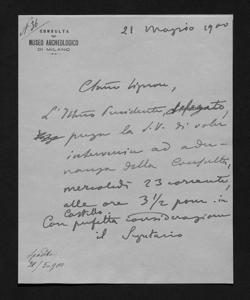 N. 36
CONSULTA
DEL
MUSEO ARCHEOLOGICO
DI MILANO
21 Maggio 1900
Chiaro Signore,
L'Ill.mo Presidente, delegato,
prega la S.V. di voler
intervenire ad adu-
nanza della Consulta,
mercoledì 23 corrente,
alle ore 3 1/2 pom. in
Castello.
Con perfetta considerazione
il Segretario